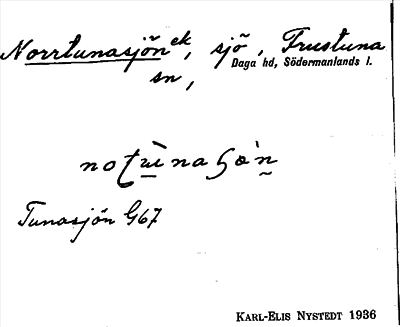 Norrtunasjön ek, sjö, Frustuna
sn,
Daga hd, Södermanlands l.
Tunasjön G67
KARL-ELIS NYSTEDT 1936